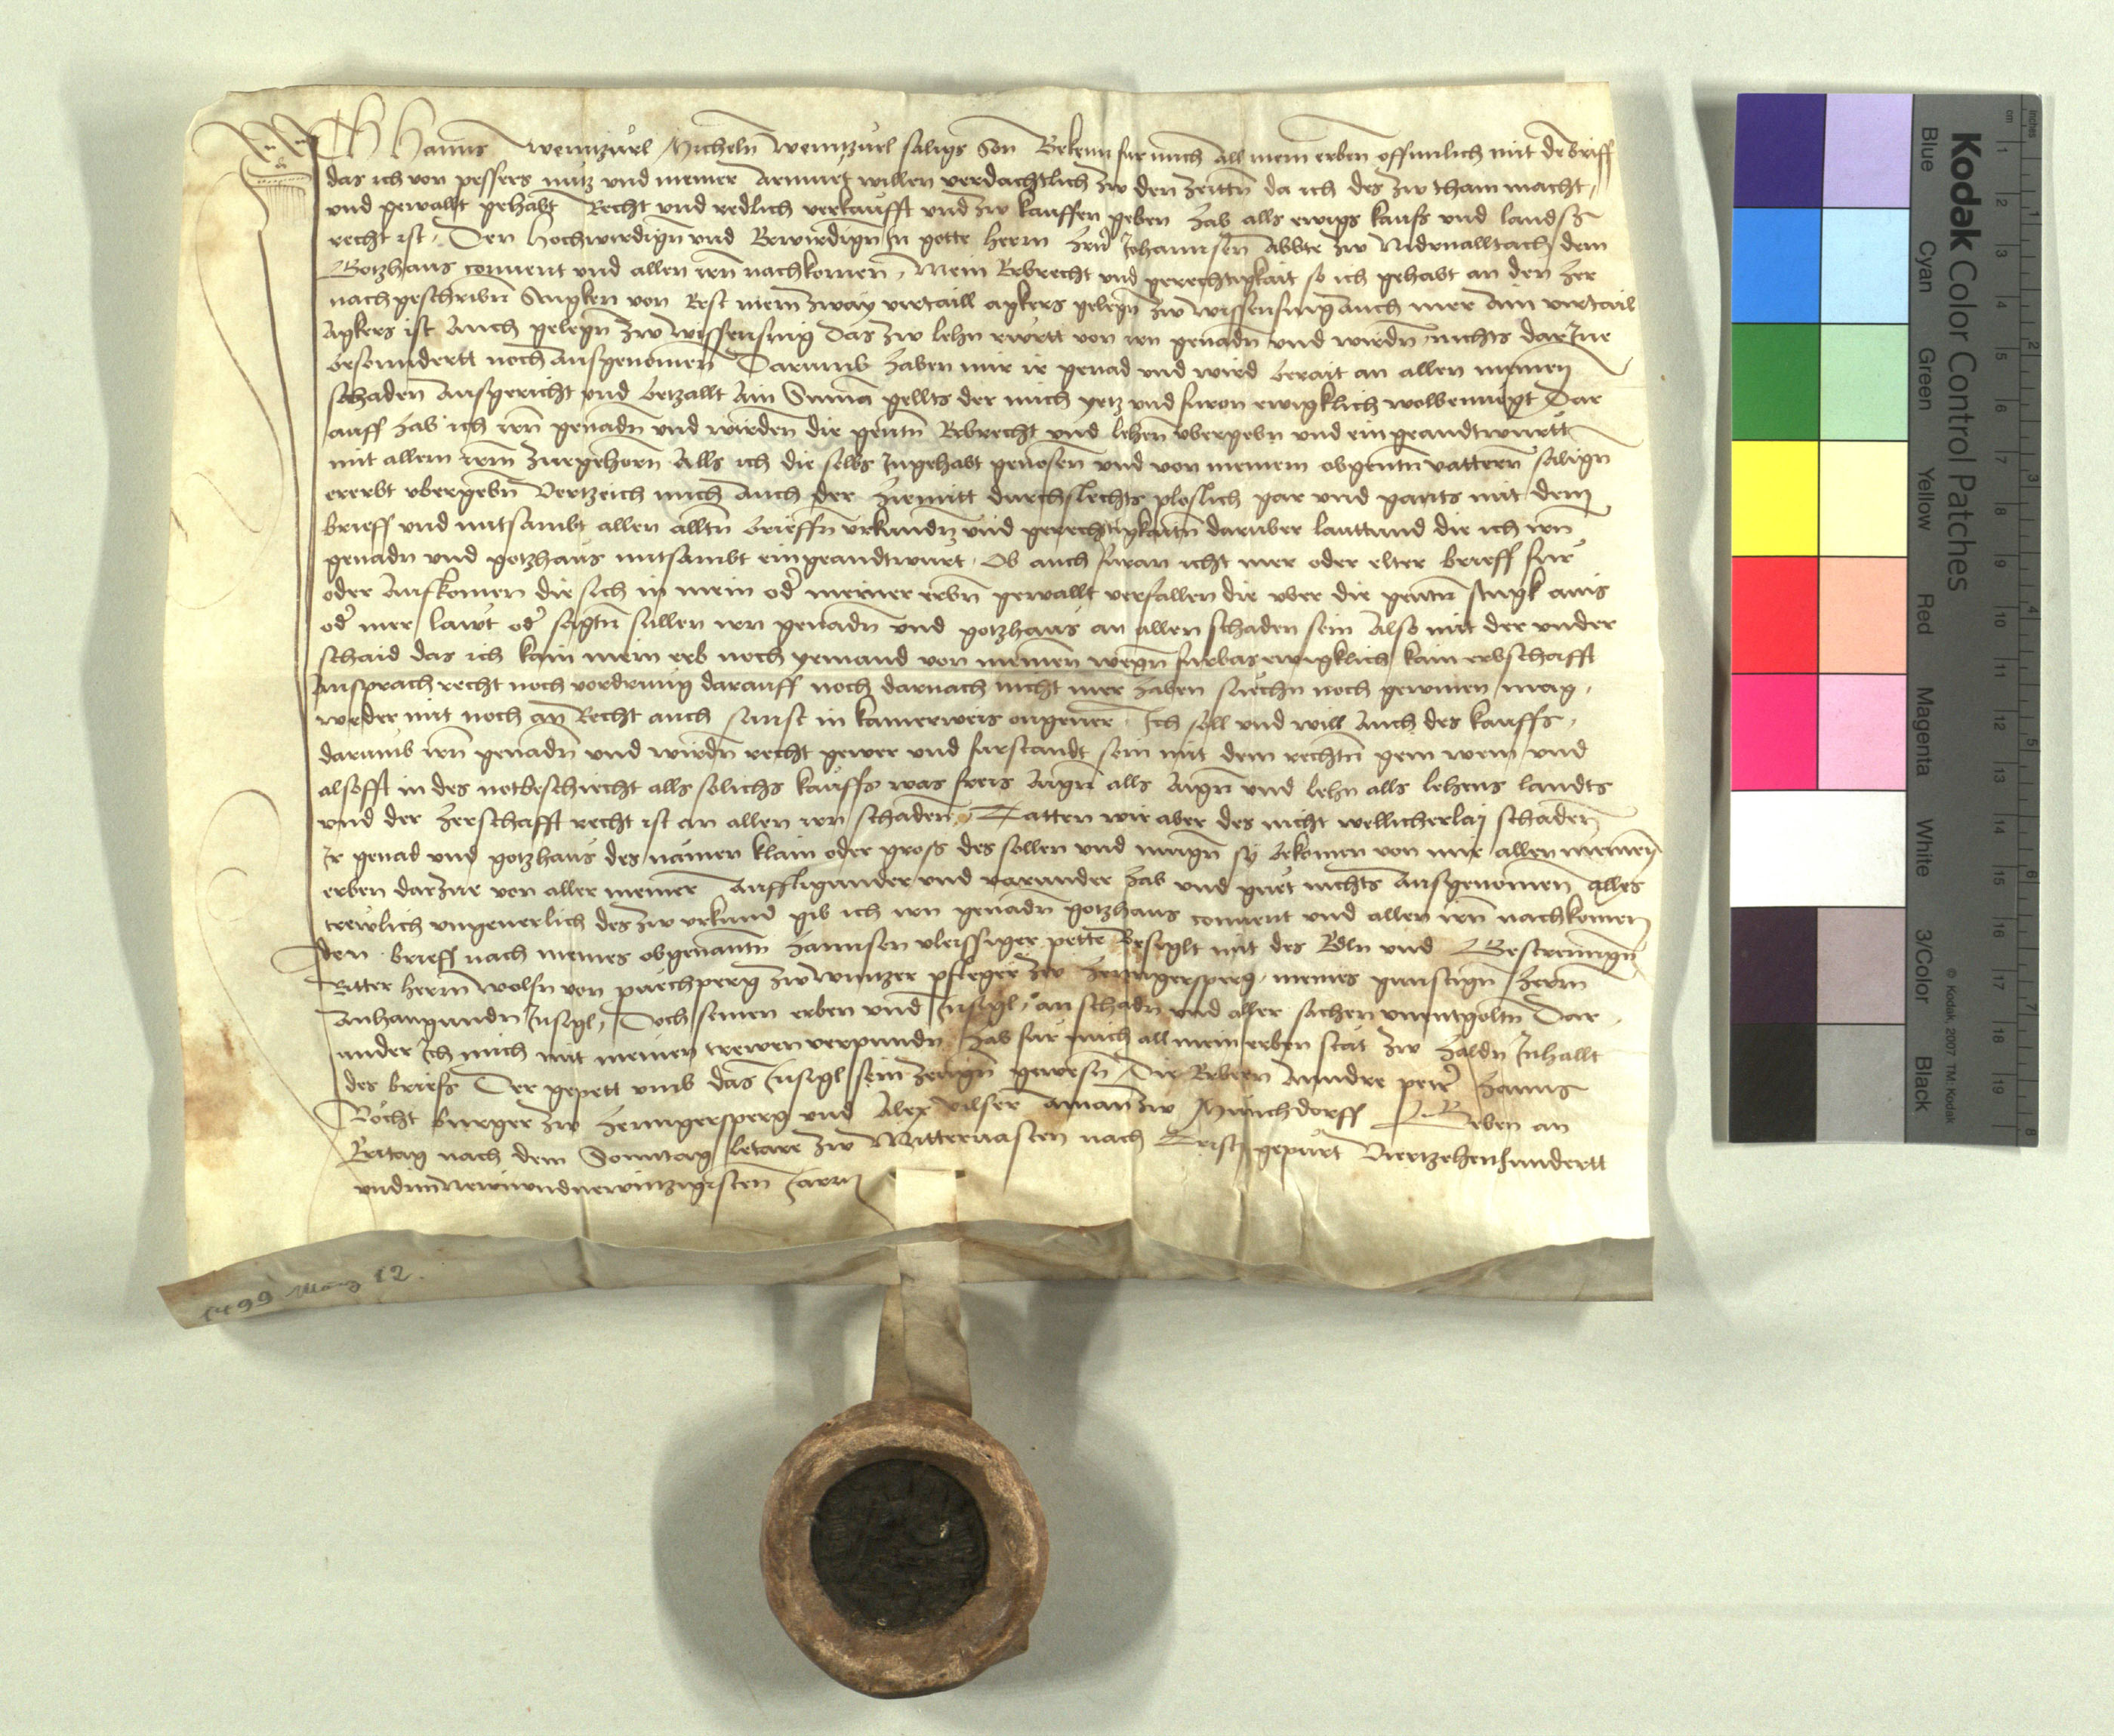 Ich Hanns Wenntzurl Micheln Wenntzurl saligs Son Bekenn fur mich all mein erben offennlich mit dē briff
das ich von pessers nutz und meiner Armuet willen verdachtlich zw den zeittn da ich des zw tham macht
und gewallt gehabt Recht und redlich verkaufft und zw kauffen geben hab alls ewigs kaufs und landß
recht ist, Den Hochwirdign und Erwirdign In gotte herrn hrn Johannsen Abbte zw Nidernalltach dem
Gotzhaus convent und allen irn nachkomen, Mein Erbrecht und gerechtigkait so ich gehabt an den her
nach geschribn Stugken von Erst mein zway virtaill agkers gelegn zw wissensing auch mer Ain virtail
Agkers ist Auch gelegn zw wissensing Das zw lehn ruertt von irn genadn und wirdn nichts darInne
besunndertt noch ausgenomen Darumb haben mir ir genad und wird berait an allen meinen
schaden ausgericht und betzallt Ain Suma gellts der mich yetz und furon ewigklich wolbenuegt Dar
auff hab ich irn genadn und wirden die gentn Erbrecht und lehen ubergebn und eingeandtwurtt
mit allem irm zuegehorn Alls ich die selbs Ingehabt genosen und von meinem obgentn vattern salign
ererbt ubergebn Vertzeich mich Auch der hiemitt durchslechts ploslich gar und gants mit dem
brieff und mitsambt allen alltn brieffn urkundn und gerechtigkaitn daruber lauttund die ich irn
genadn und gotzhaus mitsambt eingeandtwurt, Ob auch furan icht mer oder elter brieff fur
oder Auskomen die sich in mein odr meiner erbn gewallt verfallen die uber die gentn stugk ains
odr mer lawt odr sagtn sullen irn genadn und gotzhaus an allen schaden sein Also mit der under
schaid das ich kain mein erb noch yemand von meinen wegn furbas ewigklich kain erbschafft
Ansprach recht noch vordrung darauff noch darnach nicht mer haben suechn noch gewinen mag,
weder mit noch an Recht auch sunst in kainerweis ongever, Ich soll und will Auch des kauffs,
darumb irn genadn und wirdn recht gewer und furstandt sein mit dem rechtn gein wem und
alsofft in des notbeschiecht alls solichs kauffs was freis Aign alls Aign und lehn alls lehens landts
und der herschafft recht ist an allen irn schaden, Tatten wir aber des nicht wellicherlay schaden
Ir genad und gotzhaus des namen klain oder gross des sollen und mugn sy bekomen von mir allen meinen
erben darzue von aller meiner Auffligunder und varunder hab und guet nichts Ausgenomen alles
trewlich ungeverlich des zw urkund gib ich irn genadn gotzhaus convent und allen irn nachkomen
den brieff nach meines obgenantn Hannsen vleissiger pette Besiglt mit des Edln und Gestrenngn
Ritter herrn Wolfn von puechperg zw wintzer pfleger zw hennigersperg, meines gunstign herrn
Anhangundn Insigl, Doch seinen erben und Insigl, an schadn und aller sachen unentgoltn Dar
under Ich mich mit meinen trewen verpundn hab fur mich all mein erben stat zw haldn Inhallt
des briefs Der gepett umb das Insigl sein zeugn gewesn Die Erbern Anndre petr Hanns
Vocht burger zw hennigersperg und Alex vilser Aman zw Munchdorff Geben an
Eritag nach dem Sonntag letare zw Mittervasten nach Cristi gepurt Viertzehenhundertt
undimnewnundnewintzigisten Jarn
1499 März 12.
Kodak Color Control Patches
Blue Cyan Green Yellow Red Magenta White 3/Color Black
© Kodak, 2007 TM: Kodak
inches 1 2 3 4 5 6 7 8
cm 1 2 3 4 5 6 7 8 9 10 11 12 13 14 15 16 17 18 19